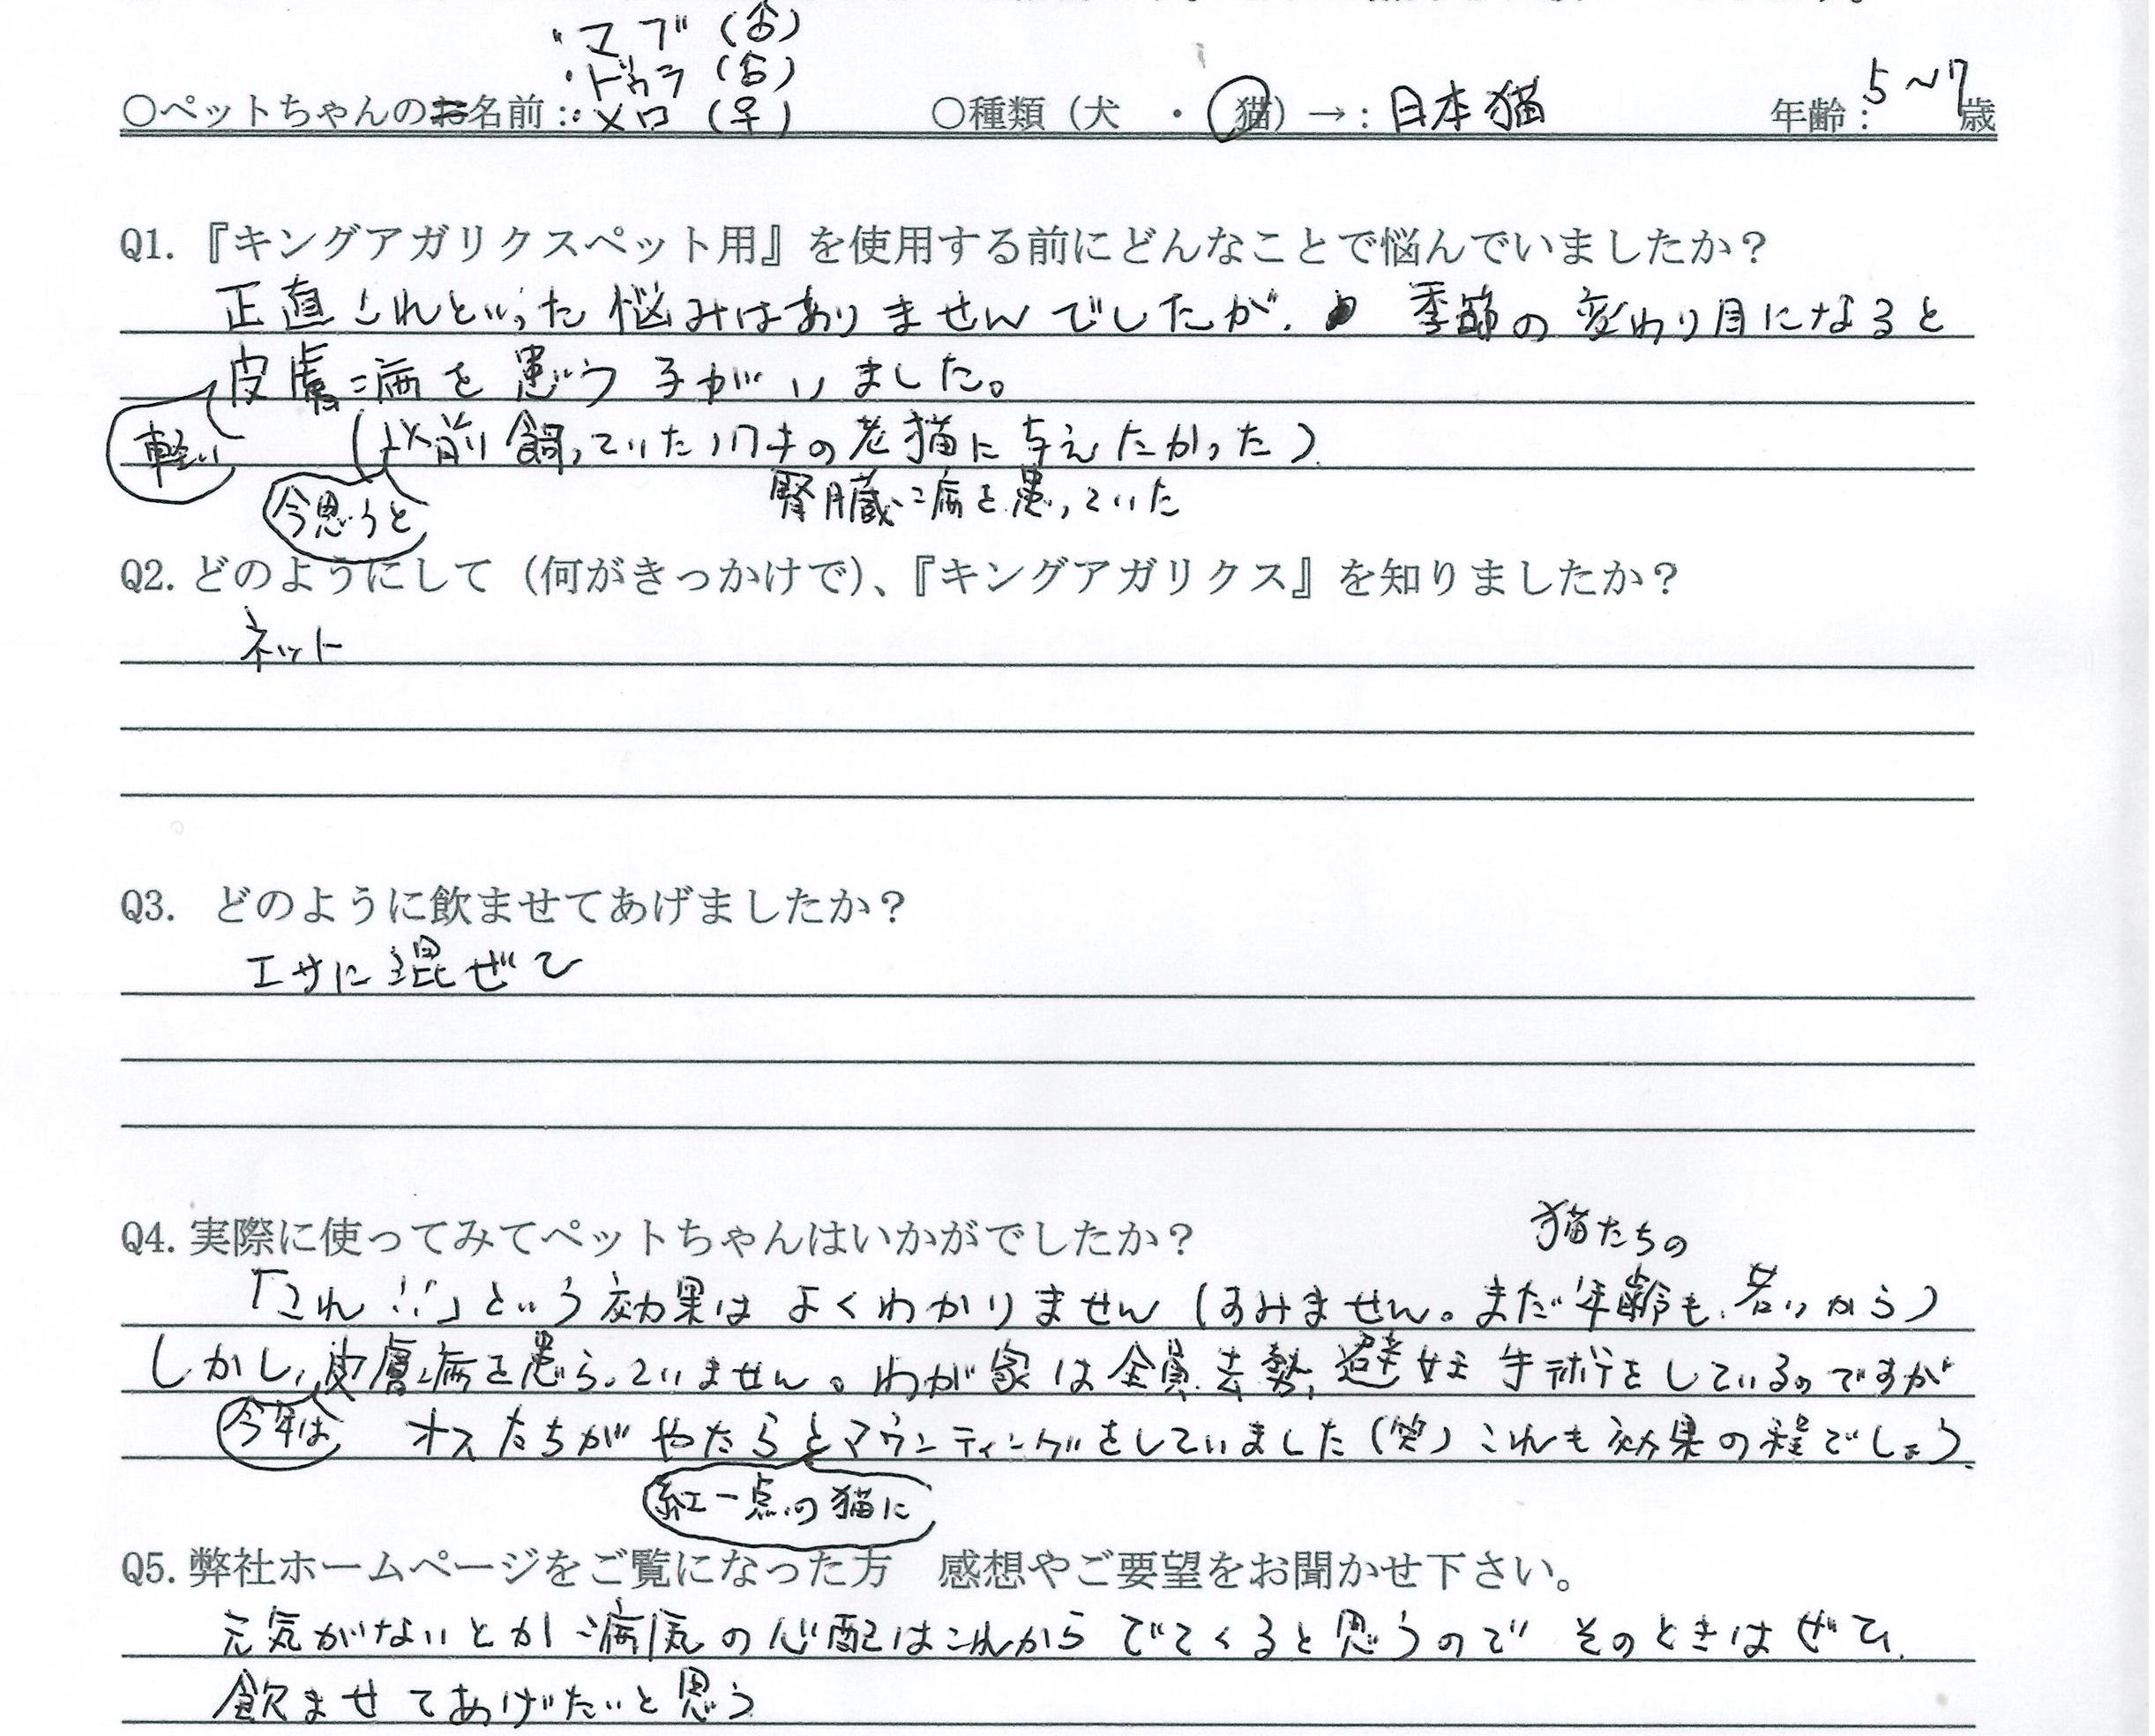 ・マブ（♂）
・ドゥラ（♂）
○ペットちゃんの名前：・メロ（♀）　○種類（犬　・　猫）→：日本猫　年齢：5～7歳
Q1.『キングアガリクスペット用』を使用する前にどんなことで悩んでいましたか？
正直これといった悩みはありませんでしたが、季節の変わり目になると
皮膚病を患う子がいました。
軽い　（以前飼っていた17才の老猫に与えたかった）
今思うと　腎臓病を患っていた
Q2.どのようにして（何がきっかけで）、『キングアガリクス』を知りましたか？
ネット
Q3.　どのように飲ませてあげましたか？
エサに混ぜて
Q4.実際に使ってみてペットちゃんはいかがでしたか？
猫たちの
「これ！！」という効果はよくわかりません（すみません。まだ年齢も若いから）
しかし、皮膚病を患らっていません。わが家は全員去勢、避妊手術をしているのですが
今年は　オスたちがやたらとマウンティングをしていました（笑）これも効果の程でしょう。
紅一点の猫に
Q5.弊社ホームページをご覧になった方　感想やご要望をお聞かせ下さい。
元気がないとか病気の心配はこれからでてくると思うので　そのときはぜひ、
飲ませてあげたいと思う